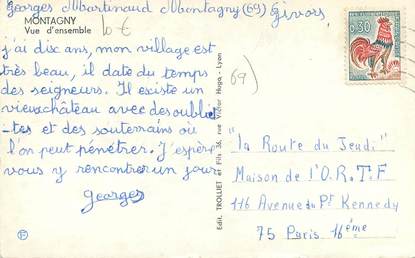 Georges Martinaud Montagny (69) Givors
MONTAGNY
Vue d'ensemble
10 €
j'ai dix ans, mon village est
très beau, il date du temps
des seigneurs. Il existe un
vieux château avec des oubliet
-tes et des souterrains où
l'on peut pénétrer. J'espère
vous y rencontrer un jour
Georges
69)
Edit. TROLLIET et Fils 36, rue Victor Hugo - Lyon
0,30
"la Route du Jeudi"
Maison de l'O.R.T.F
116 Avenue du Pt Kennedy
75 Paris 16ème